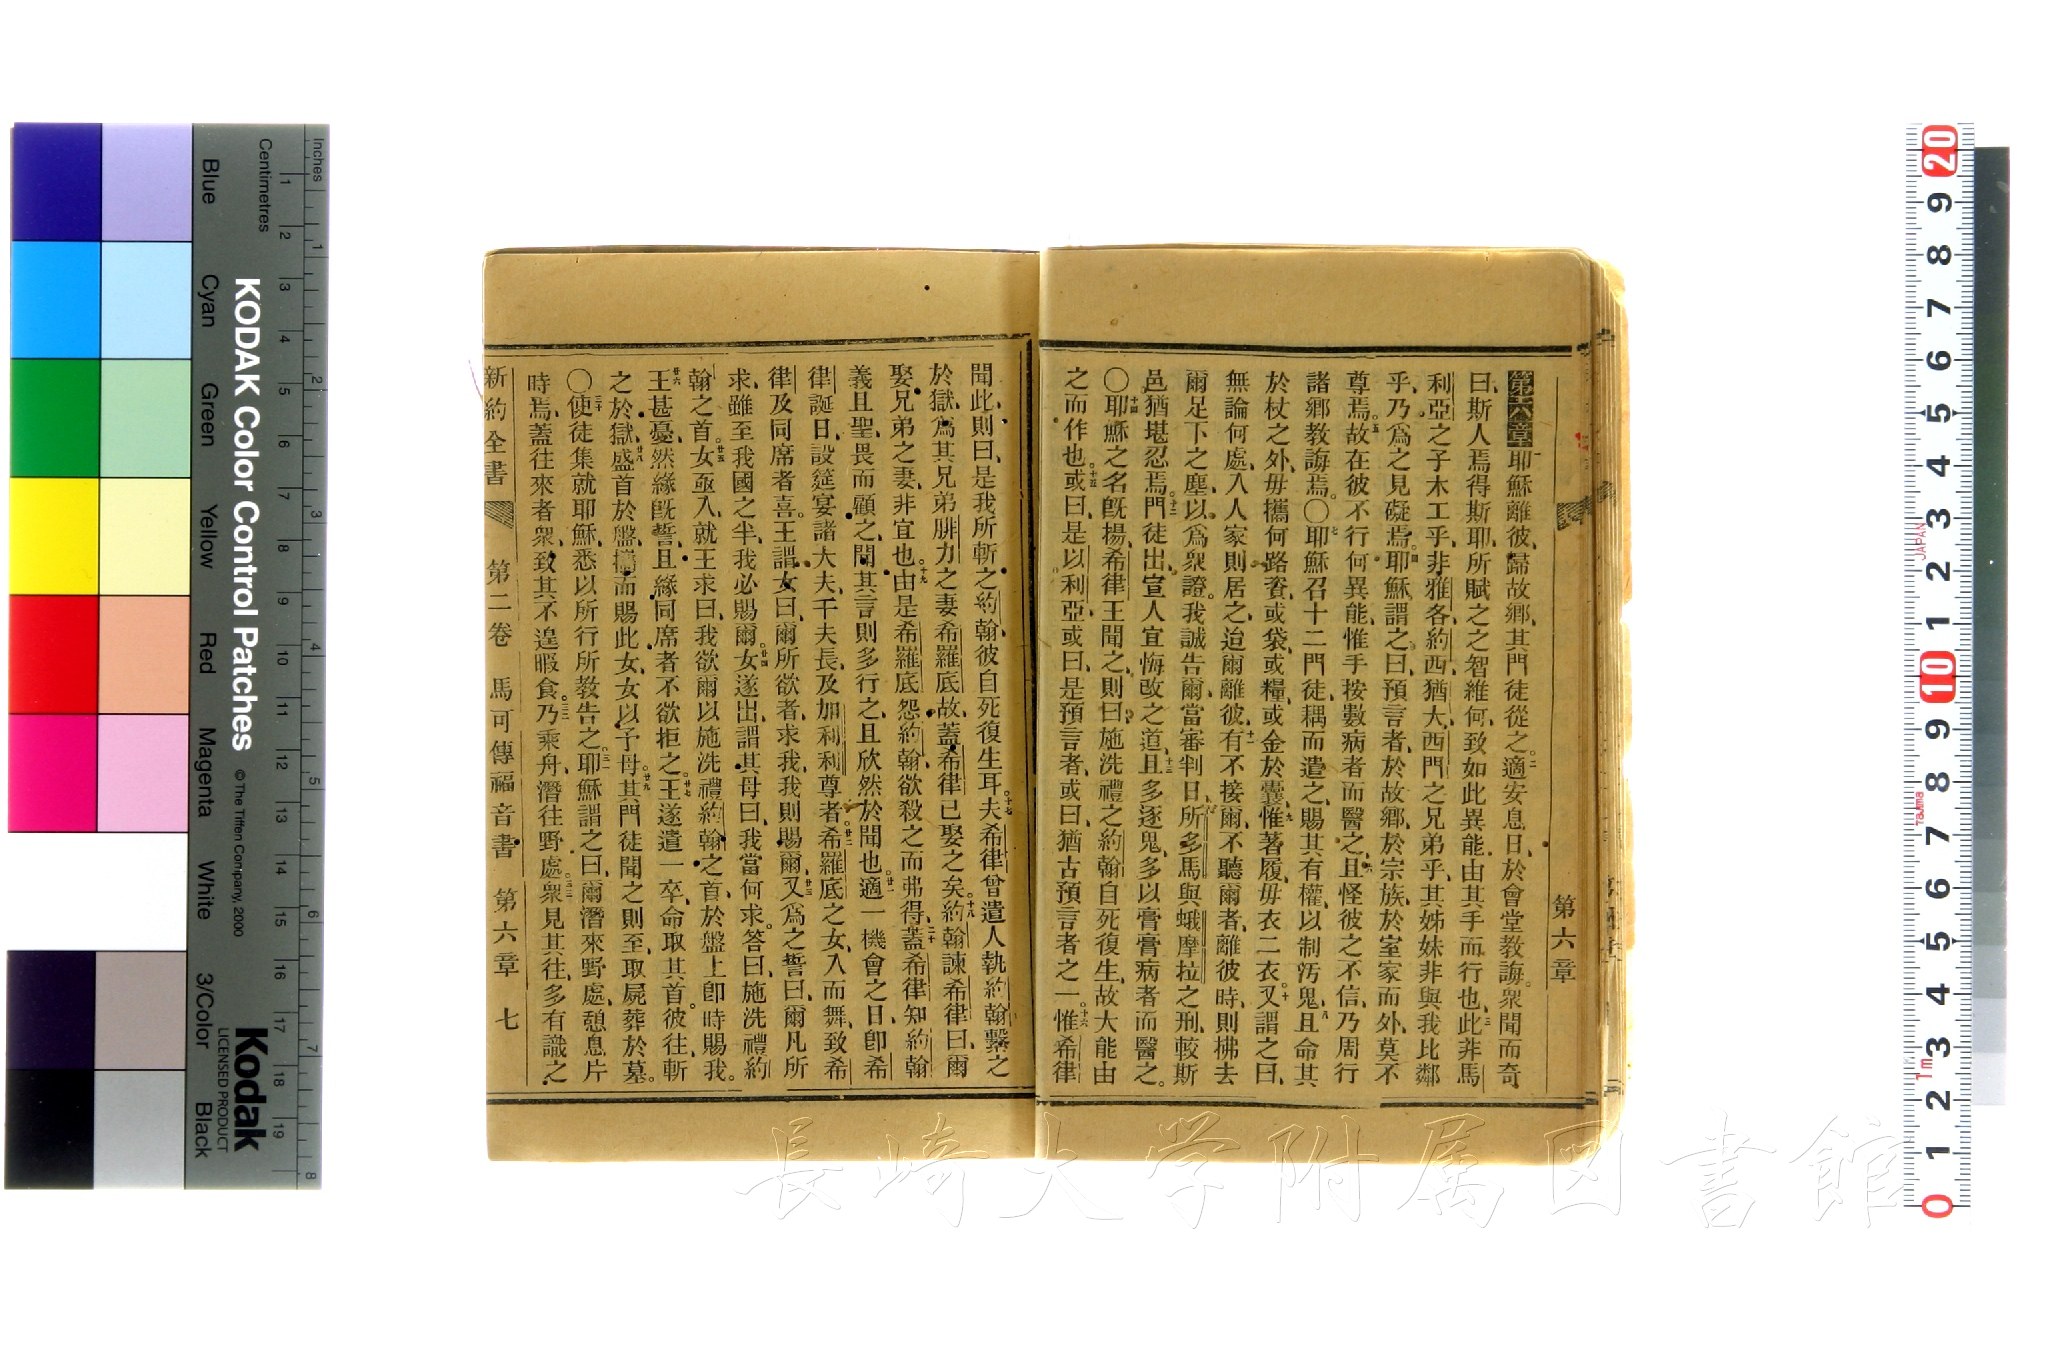 第六章
第六章耶穌離彼、歸故鄉、其門徒從之。二適安息日、於會堂教誨。衆聞而奇
曰、斯人焉得斯耶、所賦之之智維何、致如此異能、由其手而行也、三此非馬
利亞之子木工乎、非雅各約西、猶大、西門之兄弟乎、其姊妹非與我比鄰
乎、乃爲之見礙焉。四耶穌謂之曰、預言者、於故鄉、於宗族、於室家而外、莫不
尊焉。五故在彼不行何異能、惟手按數病者而醫之、六且怪彼之不信、乃周行
諸鄉教誨焉。〇七耶穌召十二門徒、耦而遣之、賜其有權、以制汚鬼、八且命其
於杖之外、毋攜何路資、或袋、或糧、或金於囊、九惟著履、毋衣二衣。十又謂之曰、
無論何處、入人家則居之、迨爾離彼、十一有不接爾、不聽爾者、離彼時、則拂去
爾足下之塵、以爲衆證。我誠告爾、當審判日、所多馬與蛾摩拉之刑、較斯
邑猶堪忍焉。十二門徒出、宣人宜悔改之道、十三且多逐鬼、多以膏膏病者而醫之。
〇十四耶穌之名既揚、希律王聞之、則曰、施洗禮之約翰、自死復生、故大能由
之而作也。十五或曰、是以利亞、或曰、是預言者、或曰、猶古預言者之一。十六惟希律
聞此、則曰、是我所斬之約翰、彼自死復生耳、十七夫希律曾遣人執約翰、繫之
於獄、爲其兄弟腓力之妻希羅底故、蓋希律已娶之矣。十八約翰諫希律曰、爾
娶兄弟之妻、非宜也。十九由是希羅底怨約翰、欲殺之而弗得、二十蓋希律知約翰
義且聖、畏而顧之、聞其言則多行之、且欣然於聞也。廿一適一機會之日、卽希
律誕日、設筵宴諸大夫、千夫長、及加利利尊者、廿二希羅底之女、入而舞、致希
律及同席者喜。王謂女曰、爾所欲者、求我、我則賜爾、廿三又爲之誓曰、爾凡所
求、雖至我國之半、我必賜爾。廿四女遂出、謂其母曰、我當何求。答曰、施洗禮約
翰之首。廿五女亟入、就王求曰、我欲爾以施洗禮約翰之首、於盤上卽時賜我。
廿六王甚憂、然緣既誓、且緣同席者、不欲拒之。廿七王遂遣一卒、命取其首。彼往、斬
之於獄、廿八盛首於盤、攜而賜此女、女以予母。廿九其門徒聞之則至、取屍葬於墓。
〇三十使徒集就耶穌、悉以所行所教告之。三一耶穌謂之曰、爾潛來野處、憩息片
時焉、蓋往來者衆、致其不遑暇食。三二乃乘舟潛往野處。三三衆見其往、多有識之
新約全書 第二卷 馬可傳福音書 第六章 七
KODAK Color Control Patches
© The Tiffen Company, 2000
Kodak
LICENSED PRODUCT
Inches
Centimetres
Blue Cyan Green Yellow Red Magenta White 3/Color Black
1 2 3 4 5 6 7 8 9 10 11 12 13 14 15 16 17 18 19
1 2 3 4 5 6 7 8
20 9 8 7 6 5 4 3 2 1 10 9 8 7 6 5 4 3 2 1 0
JAPAN
Tajima
1m
長崎大学附属図書館